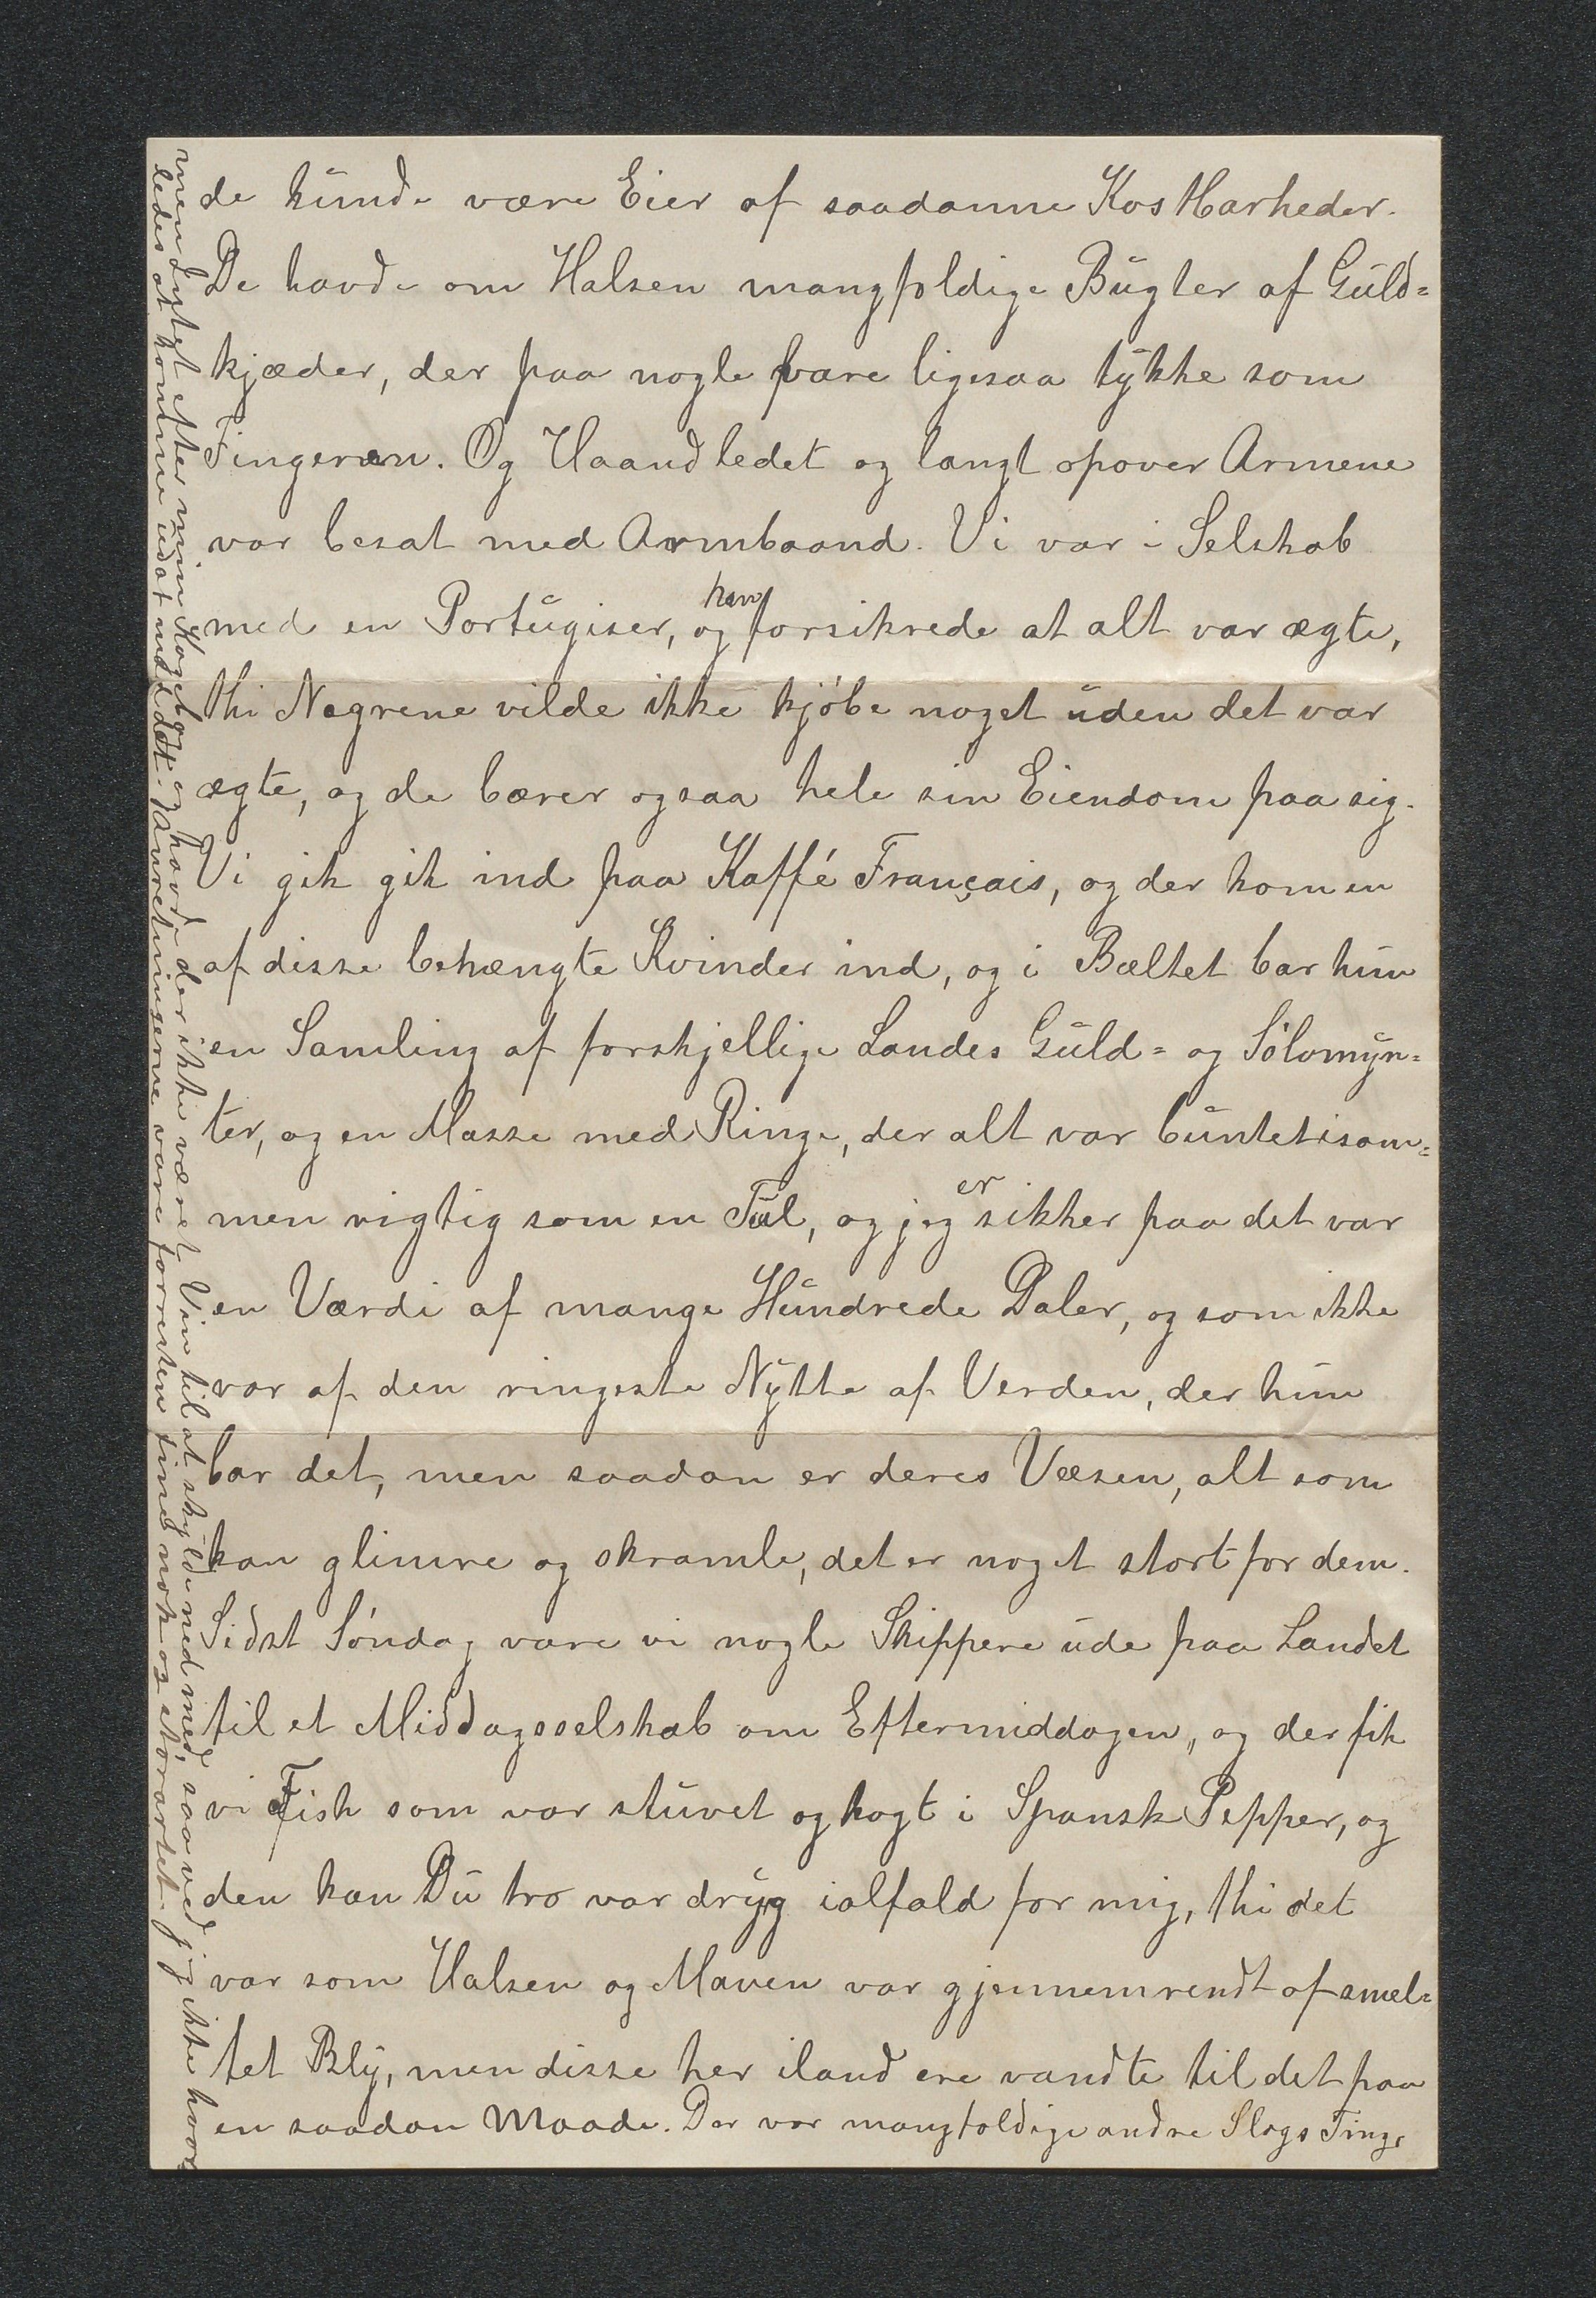 de kunde være Eier af saadanne Kostbarheder.
De havde om Halsen mangfoldige Bugter af Guld=
kjæder, der paa nogle vare ligesaa tykke som
Fingeren. Og Haandledet og langt opover Armene
var besat med Armbaand. Vi var i Selskab
med en Portugiser, og han forsikrede at alt var ægte,
thi Negrene vilde ikke kjøbe noget uden det var
ægte, og de bærer ogsaa hele sin Eiendom paa sig.
Vi gik gik ind paa Kaffé Français, og der kom en
af disse behængte Kvinder ind, og i Bæltet bar hun
en Samling af forskjellige Landes Guld= og Sølvmyn=
ter, og en Masse med Ringe, der alt var buntet isam=
men rigtig som en Tul, og jeg er sikker paa det var
en Værdi af mange Hundrede Daler, og som ikke
var af den ringeste Nytte af Verden, der hun
bar det, men saadan er deres Væsen, alt som
kan glimre og skramle, det er noget stort for dem.
Sidst Søndag vare vi nogle Skippere ude paa Landet
til et Middagsselskab om Eftermiddagen, og der fik
vi Fisk som var stuvet og kogt i Spansk Pepper, og
den kan Du tro var dryg ialfald for mig, thi det
var som Halsen og Maven var gjennemrendt af smel=
tet Bly, men disse her iland ere vandte til det paa
en saadan Maade. Der var mangfoldige andre Slags Ting,
men lystet efter min Kogebog, og havde der ikke været Vin til at skylde ned med, saa ved jeg ikke hvor=
ledes at komme udat med det. Anretningerne vare forresten fine nok og storartet.